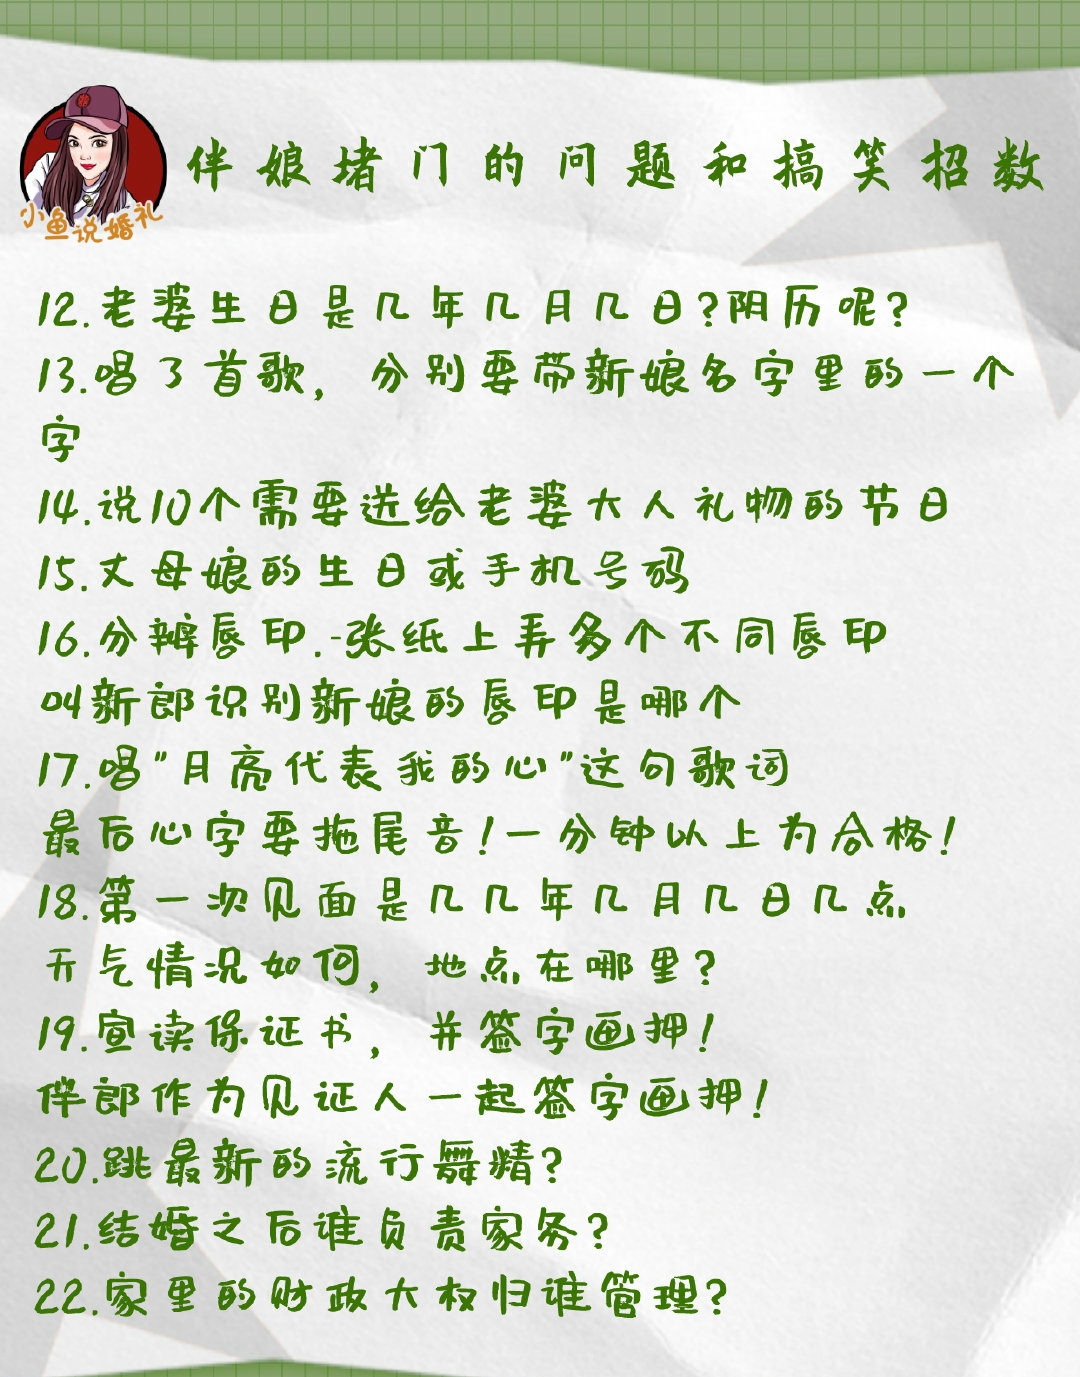 小鱼说婚礼
伴娘堵门的问题和搞笑招数
12.老婆生日是几年几月几日?阴历呢?
13.唱了首歌，分别要带新娘名字里的一个
字
14.说10个需要送给老婆大人礼物的节日
15.丈母娘的生日或手机号码
16.分辨唇印.-张纸上弄多个不同唇印
叫新郎识别新娘的唇印是哪个
17.唱"月亮代表我的心"这句歌词
最后心字要拖尾音!一分钟以上为合格!
18.第一次见面是几几年几月几日几点
天气情况如何，地点在哪里?
19.宣读保证书，并签字画押!
伴郎作为见证人一起签字画押!
20.跳最新的流行舞精?
21.结婚之后谁负责家务?
22.家里的财政大权归谁管理?